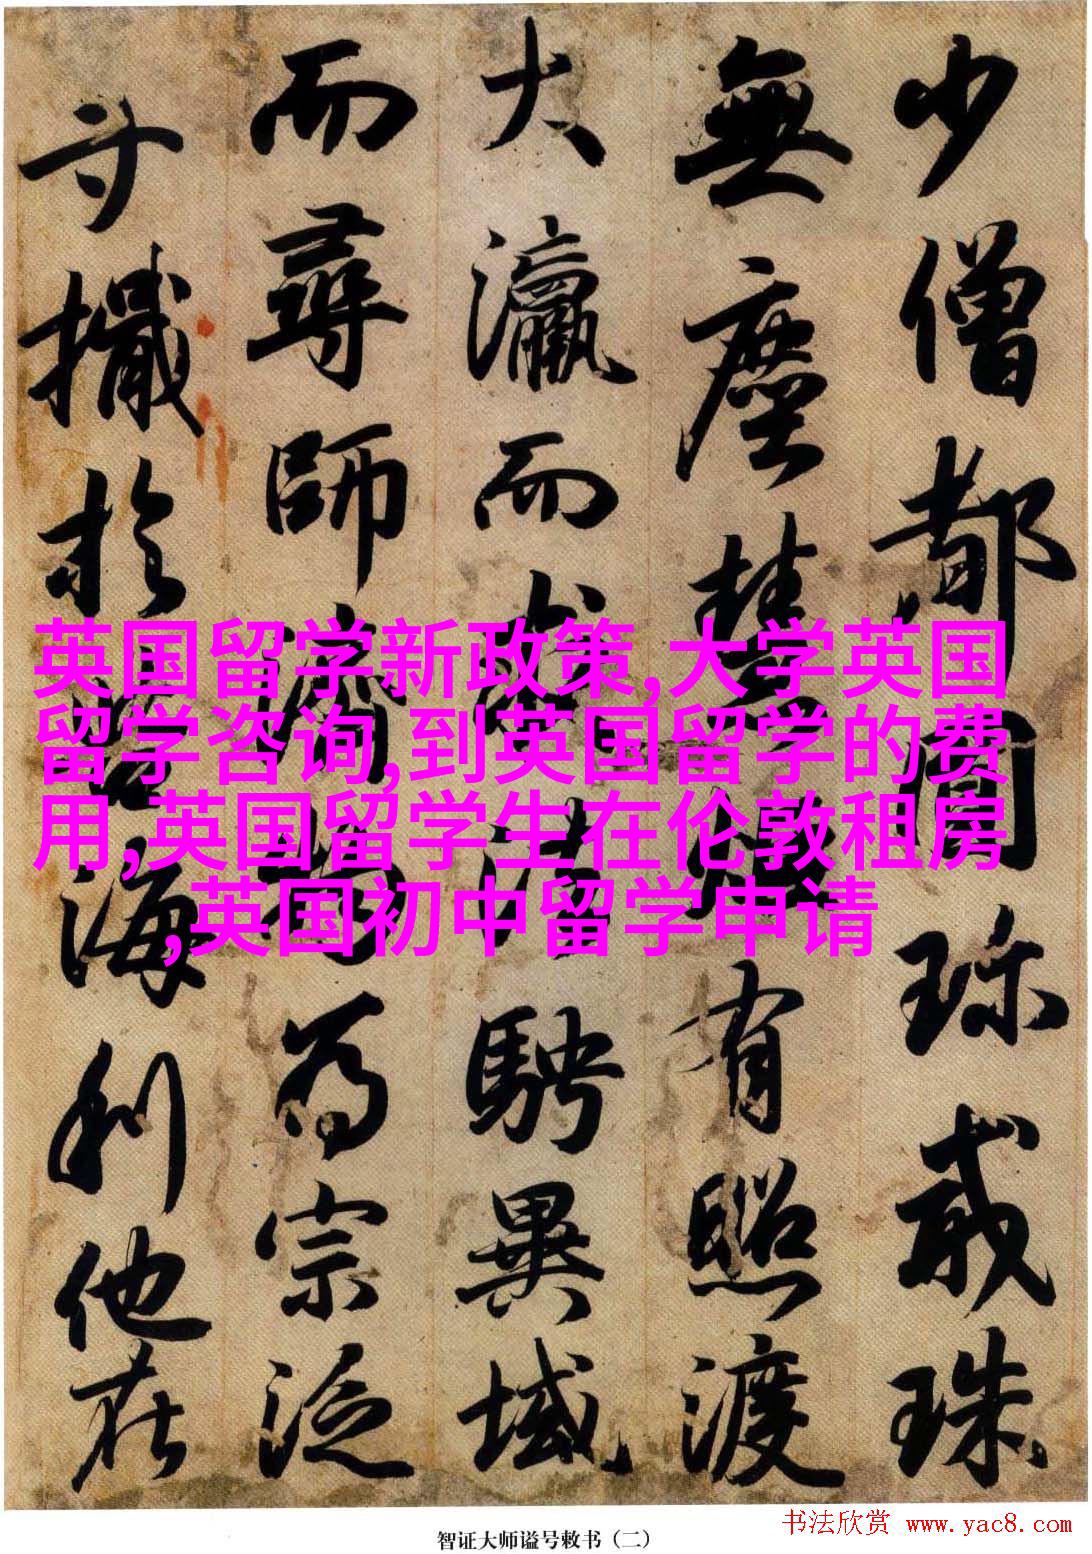 少僧都圓珍戒珠
無塵慧炬有照渡
大瀛而求法騁異域
而尋師濟物為宗泛
寸檝於苦海利他在
英国留学新政策,大学英国
留学咨询,到英国留学的费
用,英国留学生在伦敦租房
,英国初中留学申请
智证大师谥号敕书（二）
书法欣赏 www.yac8.com